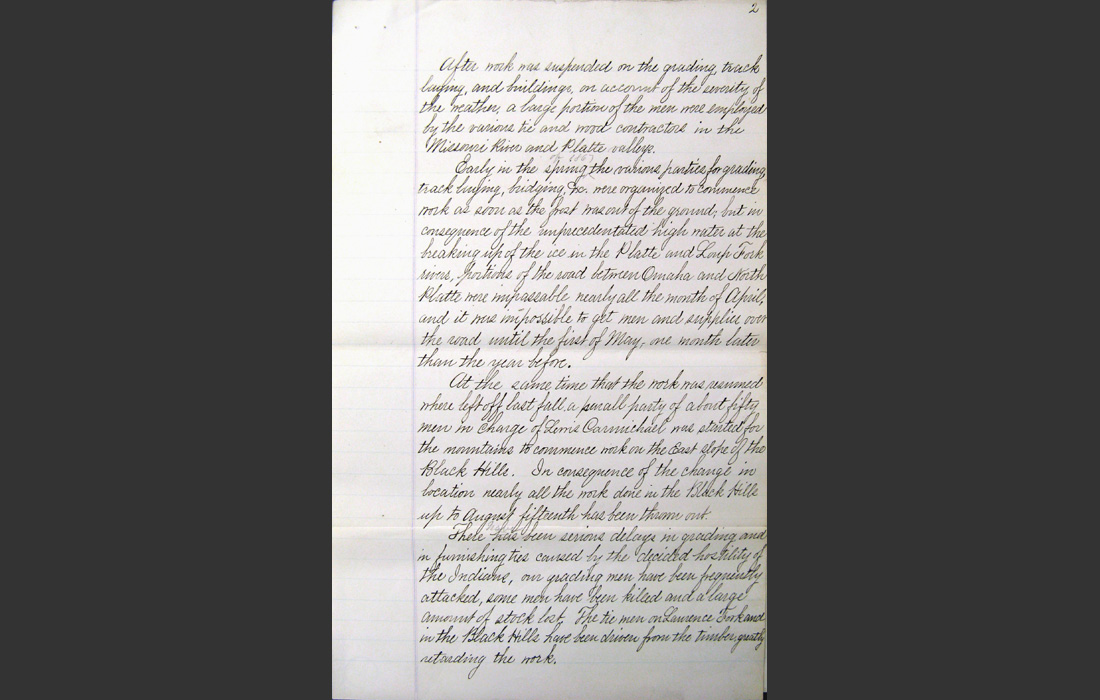 2
After work was suspended on the grading, track
laying, and buildings, on account of the severity of
the weather, a large portion of the men were employed
by the various tie and wood contractors in the
Missouri River and Platte valleys.
of 1867
Early in the spring the various parties for grading,
track laying, bridging, &c. were organized to commence
work as soon as the frost was out of the ground; but in
consequence of the unprecedentated high water at the
breaking up of the ice in the Platte and Loup Fork
rivers, portions of the road between Omaha and North
Platte were impassable nearly all the month of April,
and it was impossible to get men and supplies over
the road until the first of May, one month later
than the year before.
At the same time that the work was resumed
where left off last fall, a small party of about fifty
men in charge of Lewis Carmichael was started for
the mountains to commence work on the East slope of the
Black Hills. In consequence of the change in
location nearly all the work done in the Black Hills
up to August fifteenth has been thrown out.
There has been serious delays in grading and
in furnishing ties caused by the decided hostility of
the Indians, our grading men have been frequently
attacked, some men have been killed and a large
amount of stock lost. The tie men on Lawrence Fork and
in the Black Hills have been driven from the timber, greatly
retarding the work.